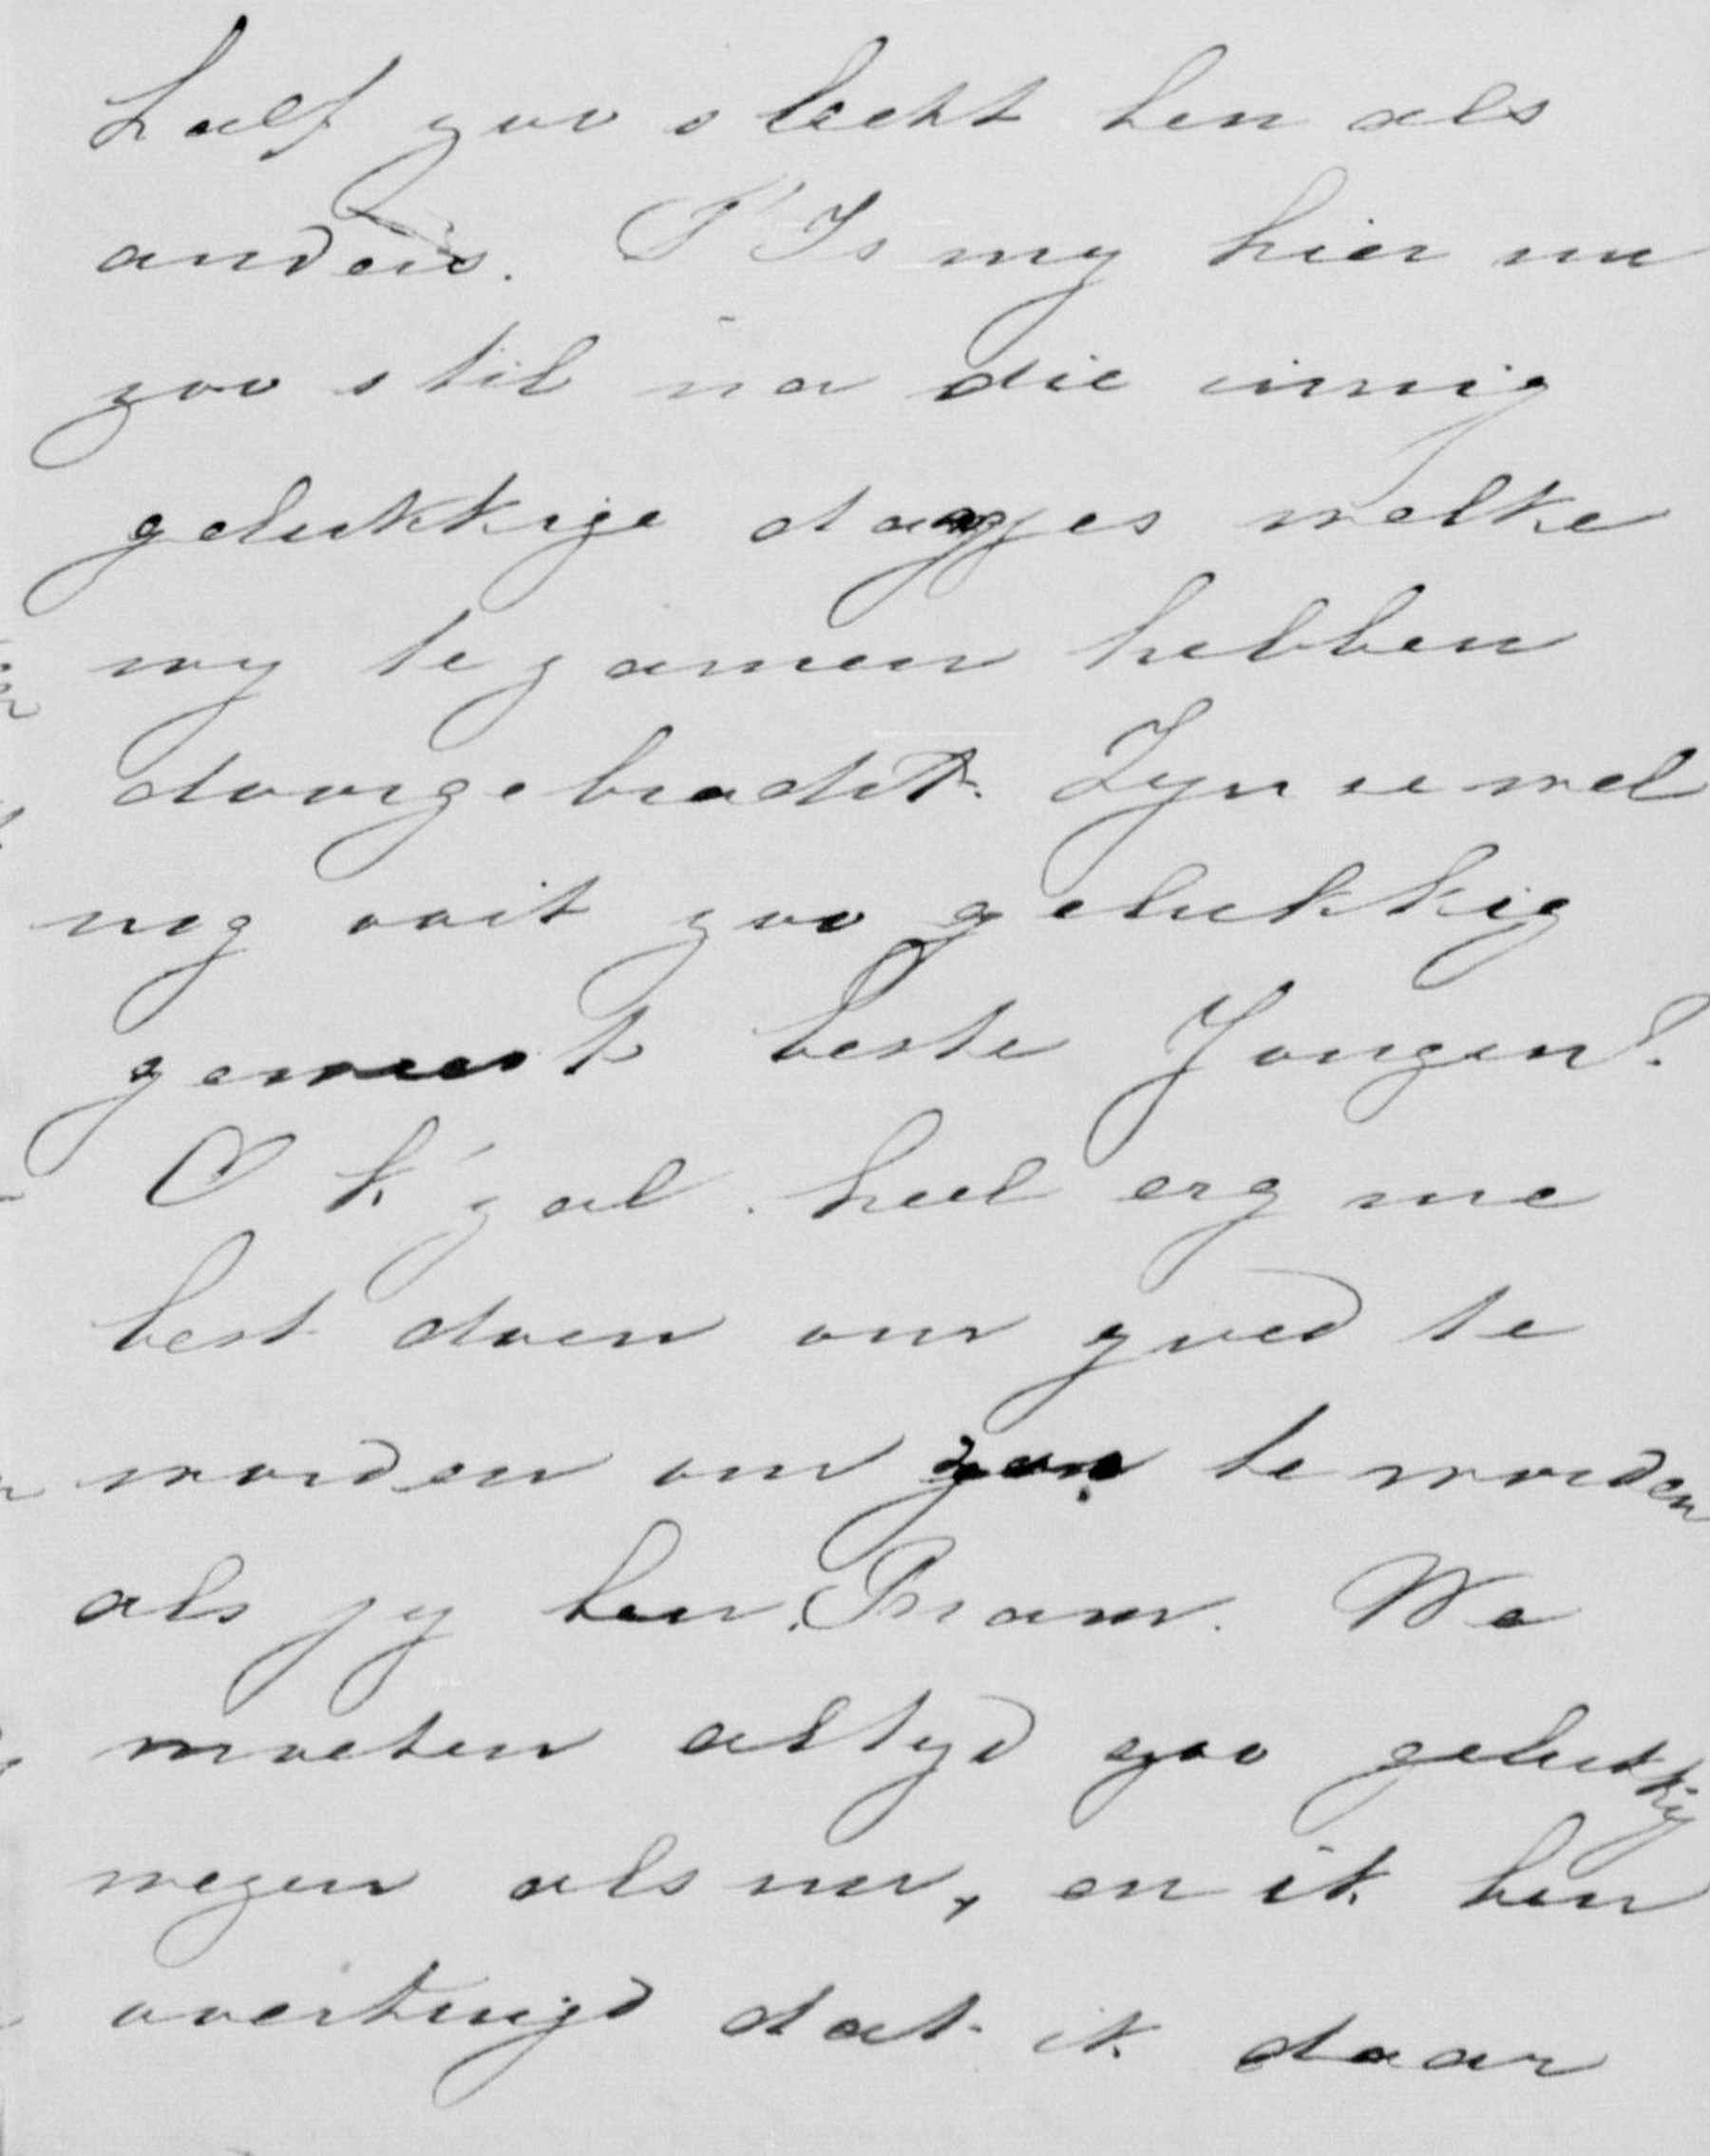 half zoo slecht ben als
anders. T'Is my hier nu
zoo stil na die innig
gelukkige dagjes welke
wy te zamen hebben
doorgebracht. Zyn we wel
nog ooit zoo gelukkig
geweest beste Jongen?
O k'zal heel erg me
best doen om goed te
worden om zoo te worden
als jy ben, Bram. We
moeten altyd zoo gelukkig
wezen als nu, en ik ben
overtuigd dat ik daar